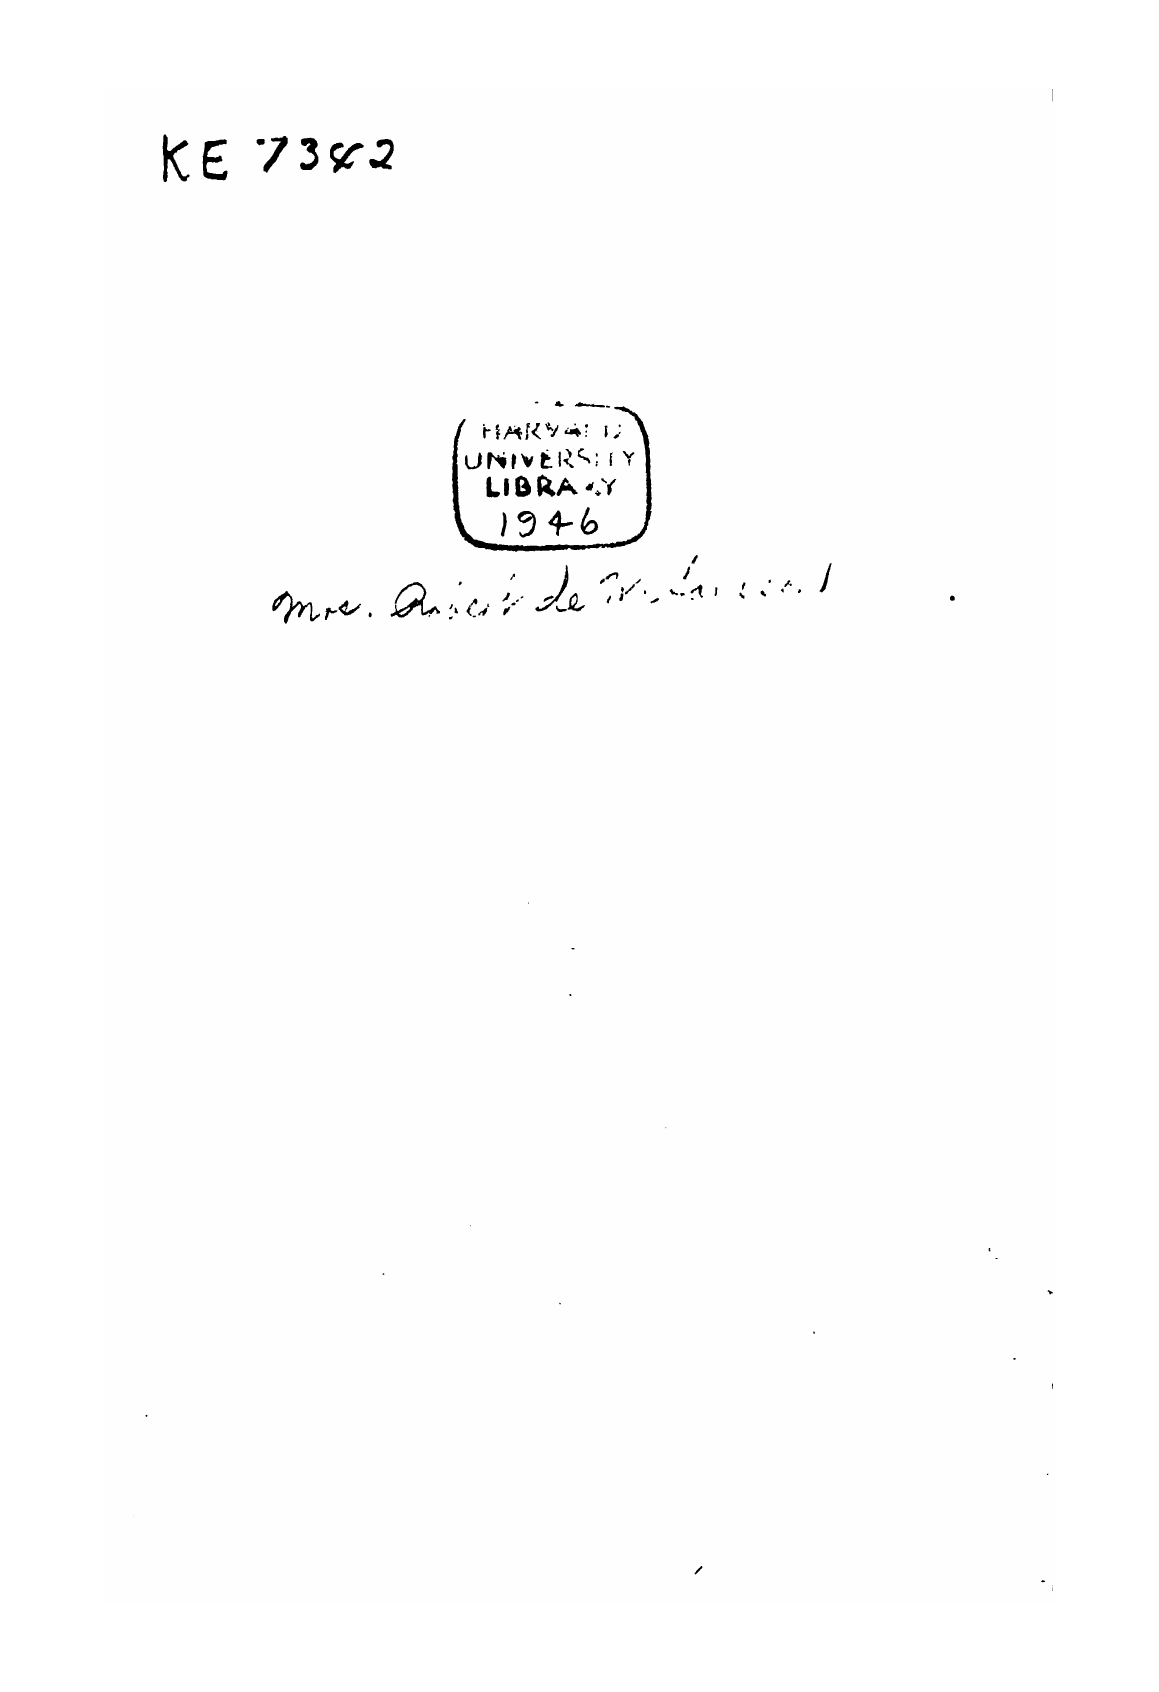 KE 7382
HARVARD
UNIVERSITY
LIBRARY
1946
Mrs. de